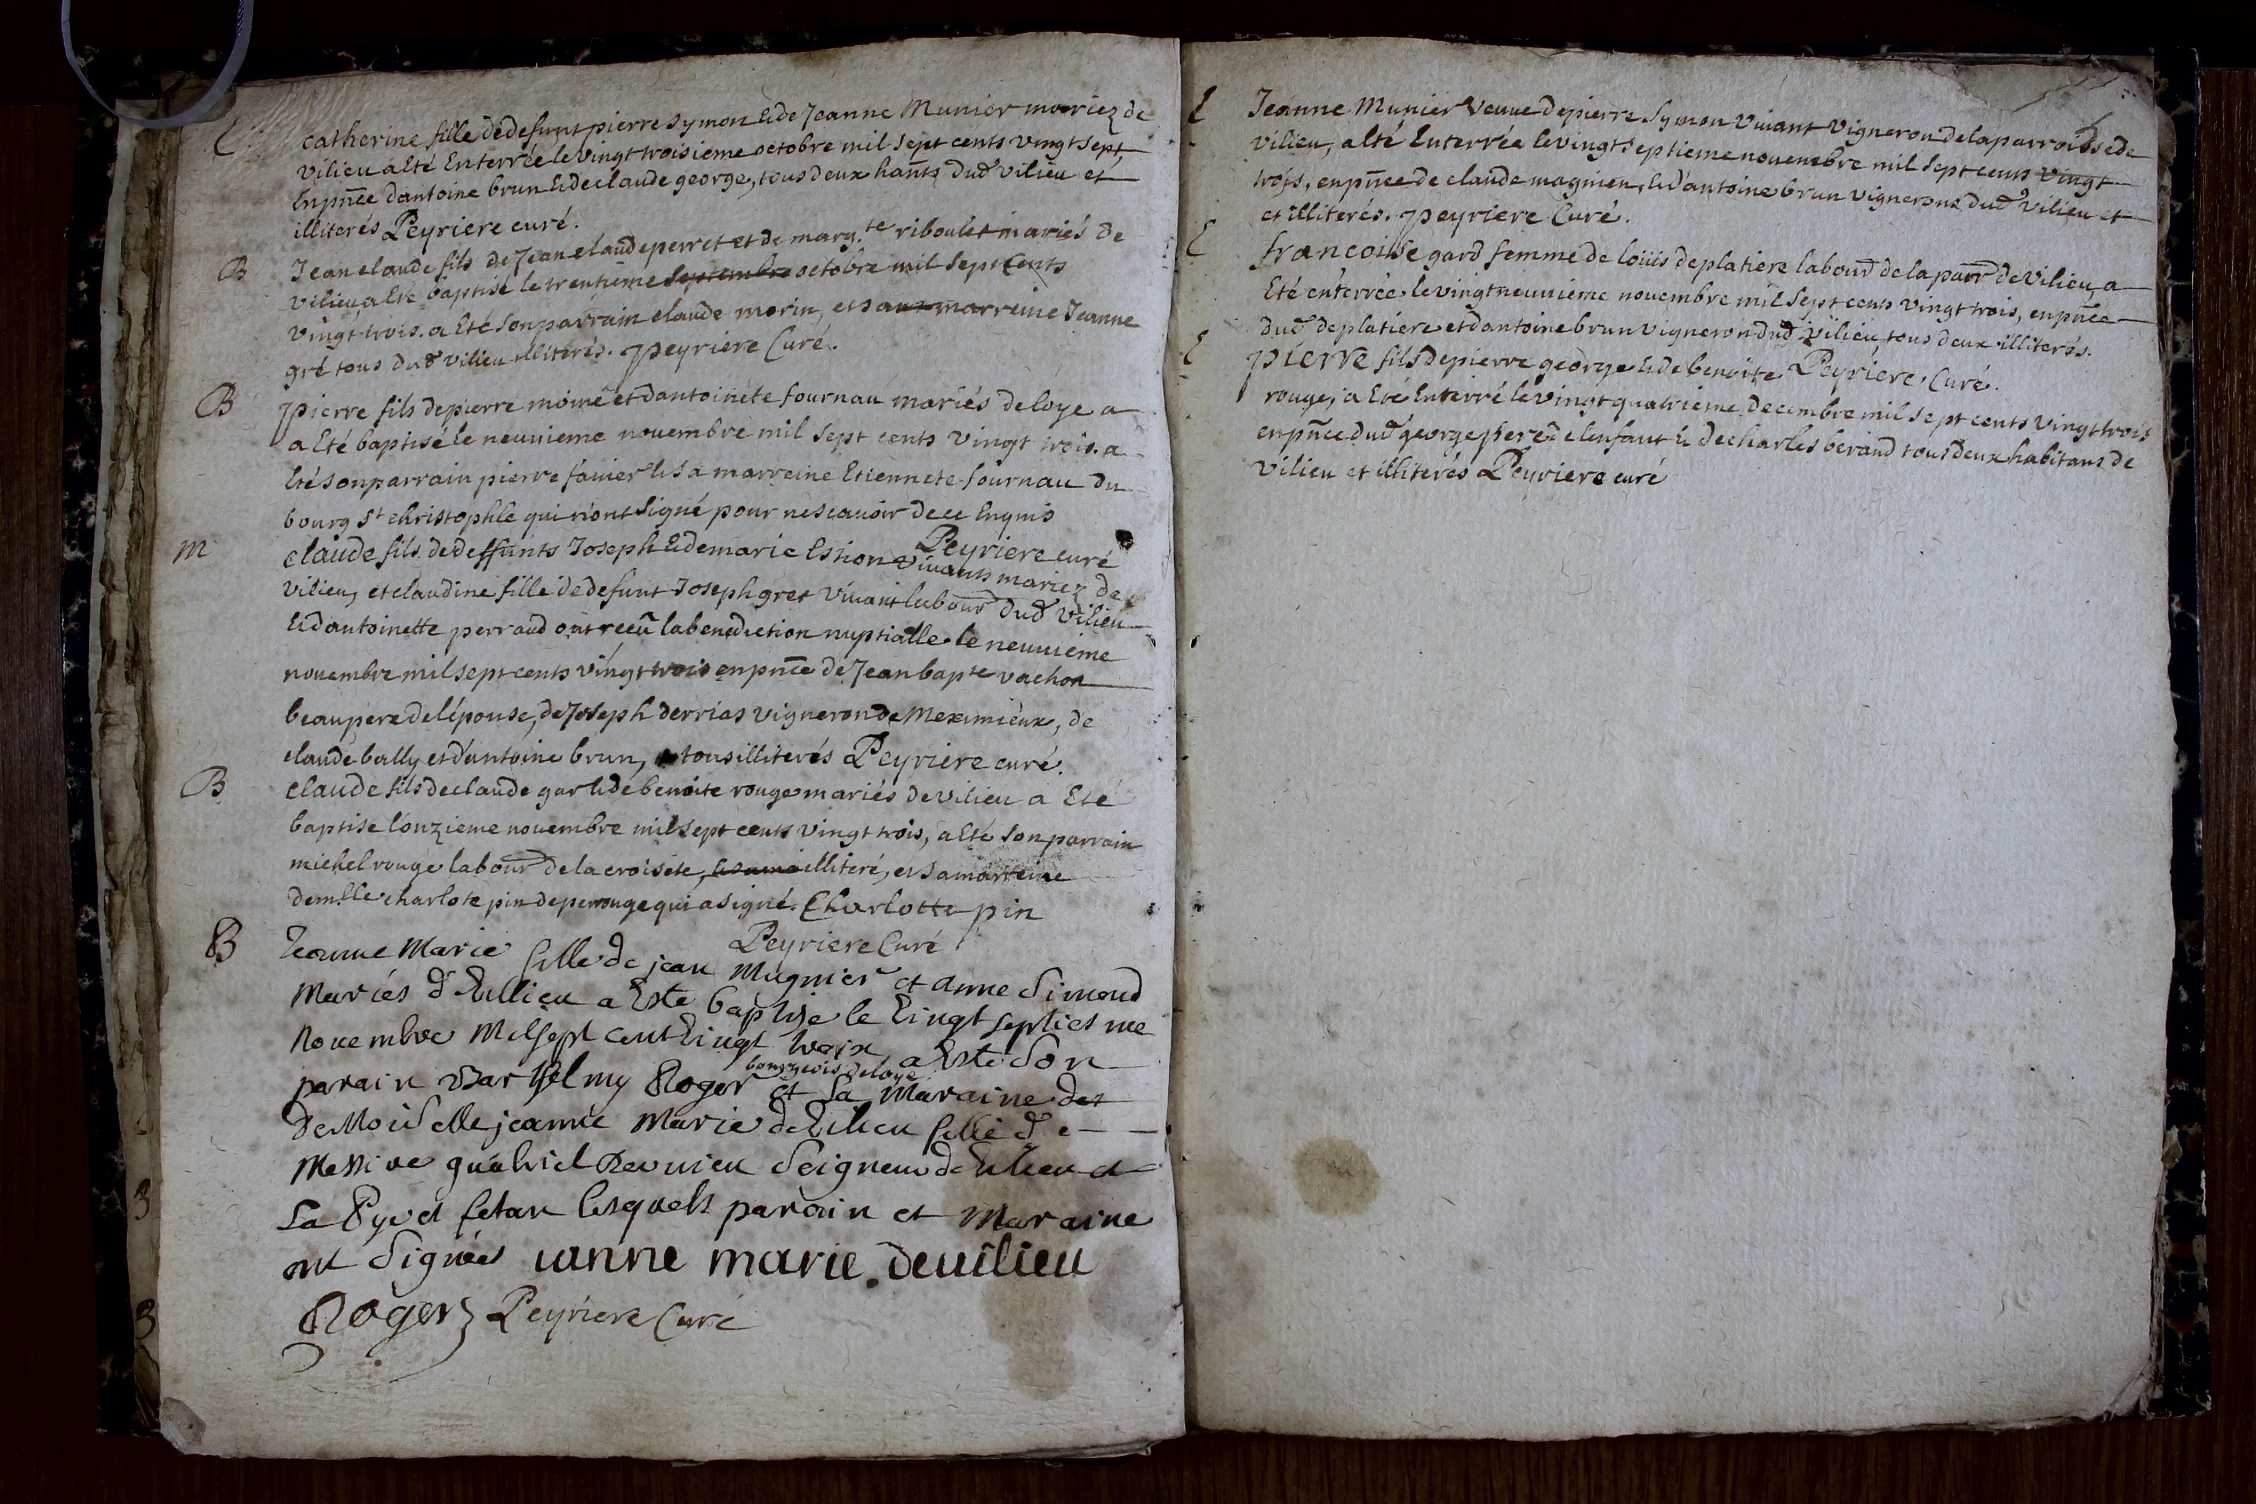 E
catherine fille de defunt pierre symon & de Jeanne Munier mariez de
vilieu a Eté Enterrée le vingt troisieme octobre mil sept cents vingt sept,
En pñce dantoine brun & de claude george, tous deux hañts dud vilieu et
illiterés Peyriere curé.
B
Jean claude fils de Jean claude perret et de marg.te riboulet mariés de
vilieu a Eté baptisé le trentieme septembre octobre mil sept Cents
vingt-trois. a Eté son parrain claude morin, et sa marreine Jeanne
gré tous dud vilieu illiterés. Peyriere Curé.
B
Pierre fils de pierre moine et dantoinete fournau mariés de loye a
a Eté baptisé le neuuieme nouembre mil sept cents vingt trois. a
Eté son parrain pierre fauier & sa marreine Etiennete fournau du
bourg st christophle qui n'ont signé pour ne scauoir de ce Enquis
Peyriere curé
M
claude fils de deffunts Joseph & de marie Estion viuants mariez de
vilieu, et claudine fille de defunt Joseph gret viuant labour dud vilieu
& dantoinette perraud ont receu la benediction nuptialle le neuuieme
nouembre mil sept cents vingt trois en pñce de Jean bapte vachon
beaupere de lépouse, de Joseph derrias vigneron de Meximieux, de
claude bally et dantoine brun, tous illiterés Peyriere curé.
B
claude fils de claude gar & de benoite rouge mariés de vilieu a Eté
baptise lonzieme nouembre mil sept cents vingt trois, a Eté son parrain
michel rouge labour de la croisete, illiteré, et sa marreine
demlle charlote pin de perouge qui a signé. Charlotte pin
Peyriere Curé
B
Jeanne Marie fille de jean Mugnier et anne Simond
Mariés de Villieu a Este baptise le Vingt septiesme
Nouembre Mil sept cent Vingt troix, a Este Son
parain Barthelmy Roger bourgeois de loye et Sa Maraine
deMoiselle jeanne Marie de Vilieu fille de
Messire guabriel Deuuieu Seigneur de Vilieu et
La Pye et fetan lesquels parain et Maraine
ont Signés ianne marie deuilieu
Roger Peyriere Curé
E
Jeanne Munier Veuue de pierre Symon viuant vigneron de la parroisse de
vilieu, a Eté Enterrée le vingt septieme nouembre mil sept cens vingt
trois, en pñce de claude magnien, & d'antoine brun vignerons dud vilieu et
et illiterés. Peyriere Curé.
E
francoise gard femme de loüis deplatiere labour de la parr de vilieu, a
Eté enterrée le vingt neuuieme nouembre mil sept cens vingt trois, en pñce
dud deplatiere et dantoine brun vigneron dud vilieu, tous deux illiterés.
Peyriere, Curé.
E
pierre fils de pierre george & de benoite
rouge, a Eté Enterré le vingt quatrieme decembre mil sept cents vingt trois
en pñce dud george pere de lenfant & de charles beraud tous deux habitans de
vilieu et illiterés Peyriere curé